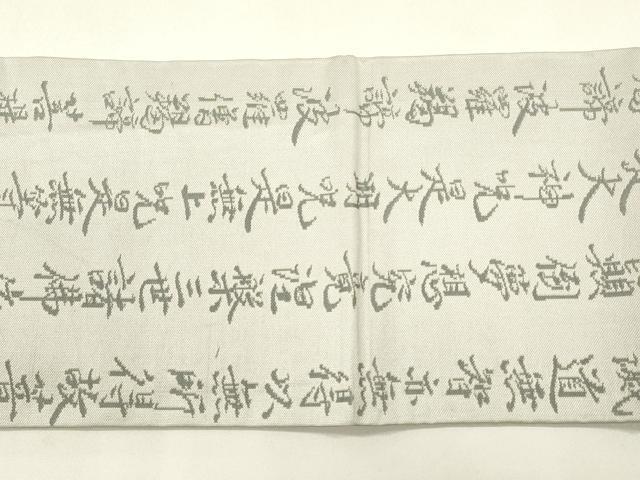 諦波羅揭諦波羅僧揭諦菩提
是大神呪是大明呪是無上呪是無等
顛倒夢想究竟涅槃三世諸佛
滅道無智亦無得以無所得故菩